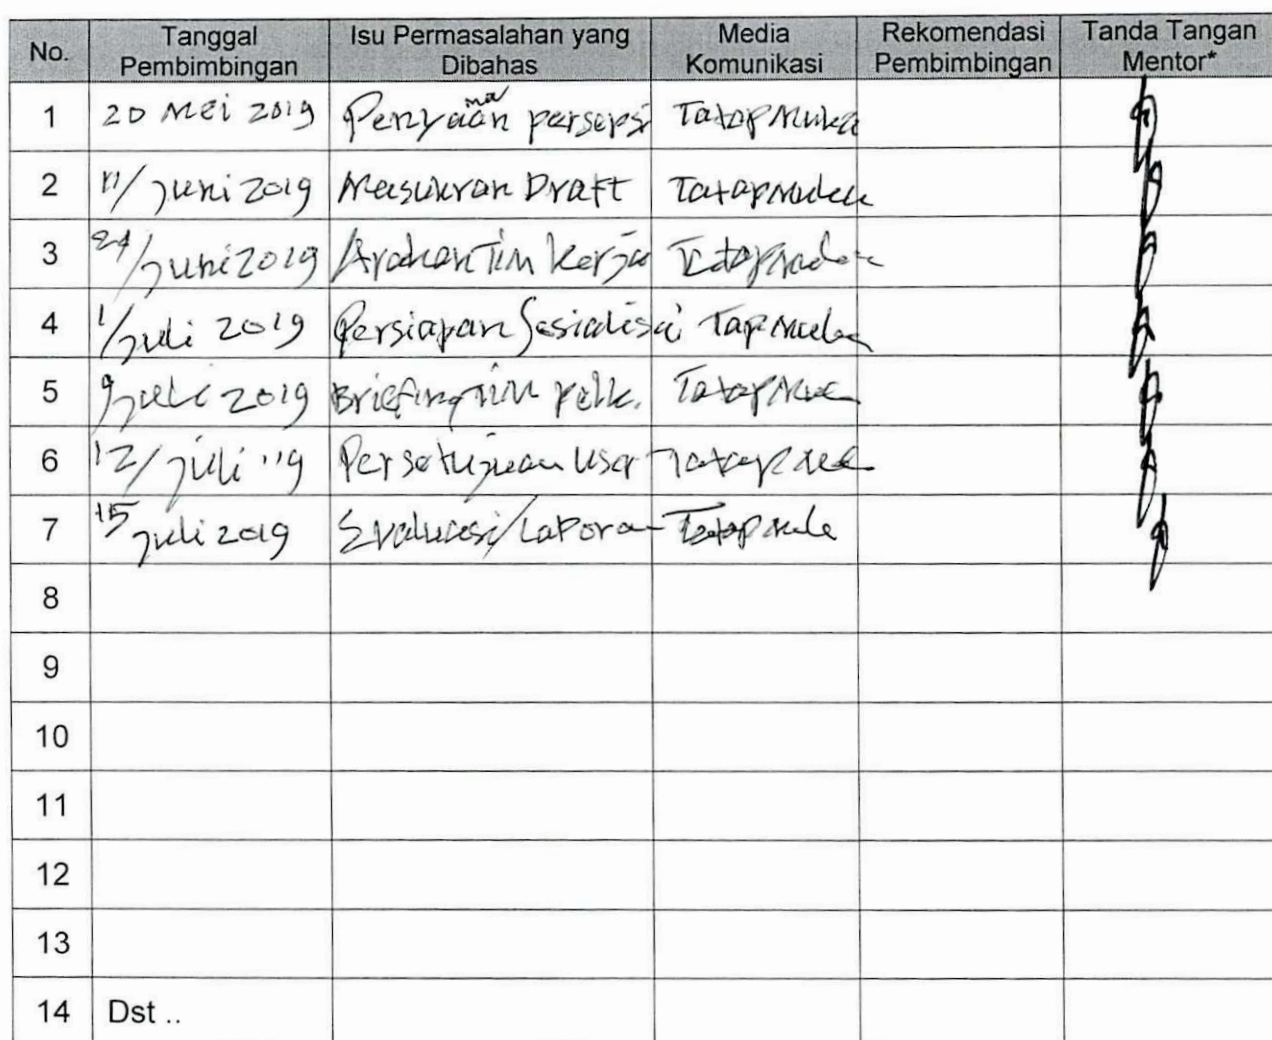 No. Tanggal Pembimbingan Isu Permasalahan yang Dibahas Media Komunikasi Rekomendasi Pembimbingan Tanda Tangan Mentor*
1 20 Mei 2019 Penyamaan persepsi Tatap Muka
2 11/Juni 2019 Masukan Draft Tatap muka
3 24/Juni 2019 Arahan Tim Kerja Tatap muka
4 1/Juli 2019 Persiapan Sosialisasi Tap muka
5 9 Juli 2019 Briefing Tim Tatap Muka
6 12/Juli '19 Persetujuan Tatap muka
7 15 Juli 2019 Evaluasi/Laporan Tatap muka
8
9
10
11
12
13
14 Dst ..